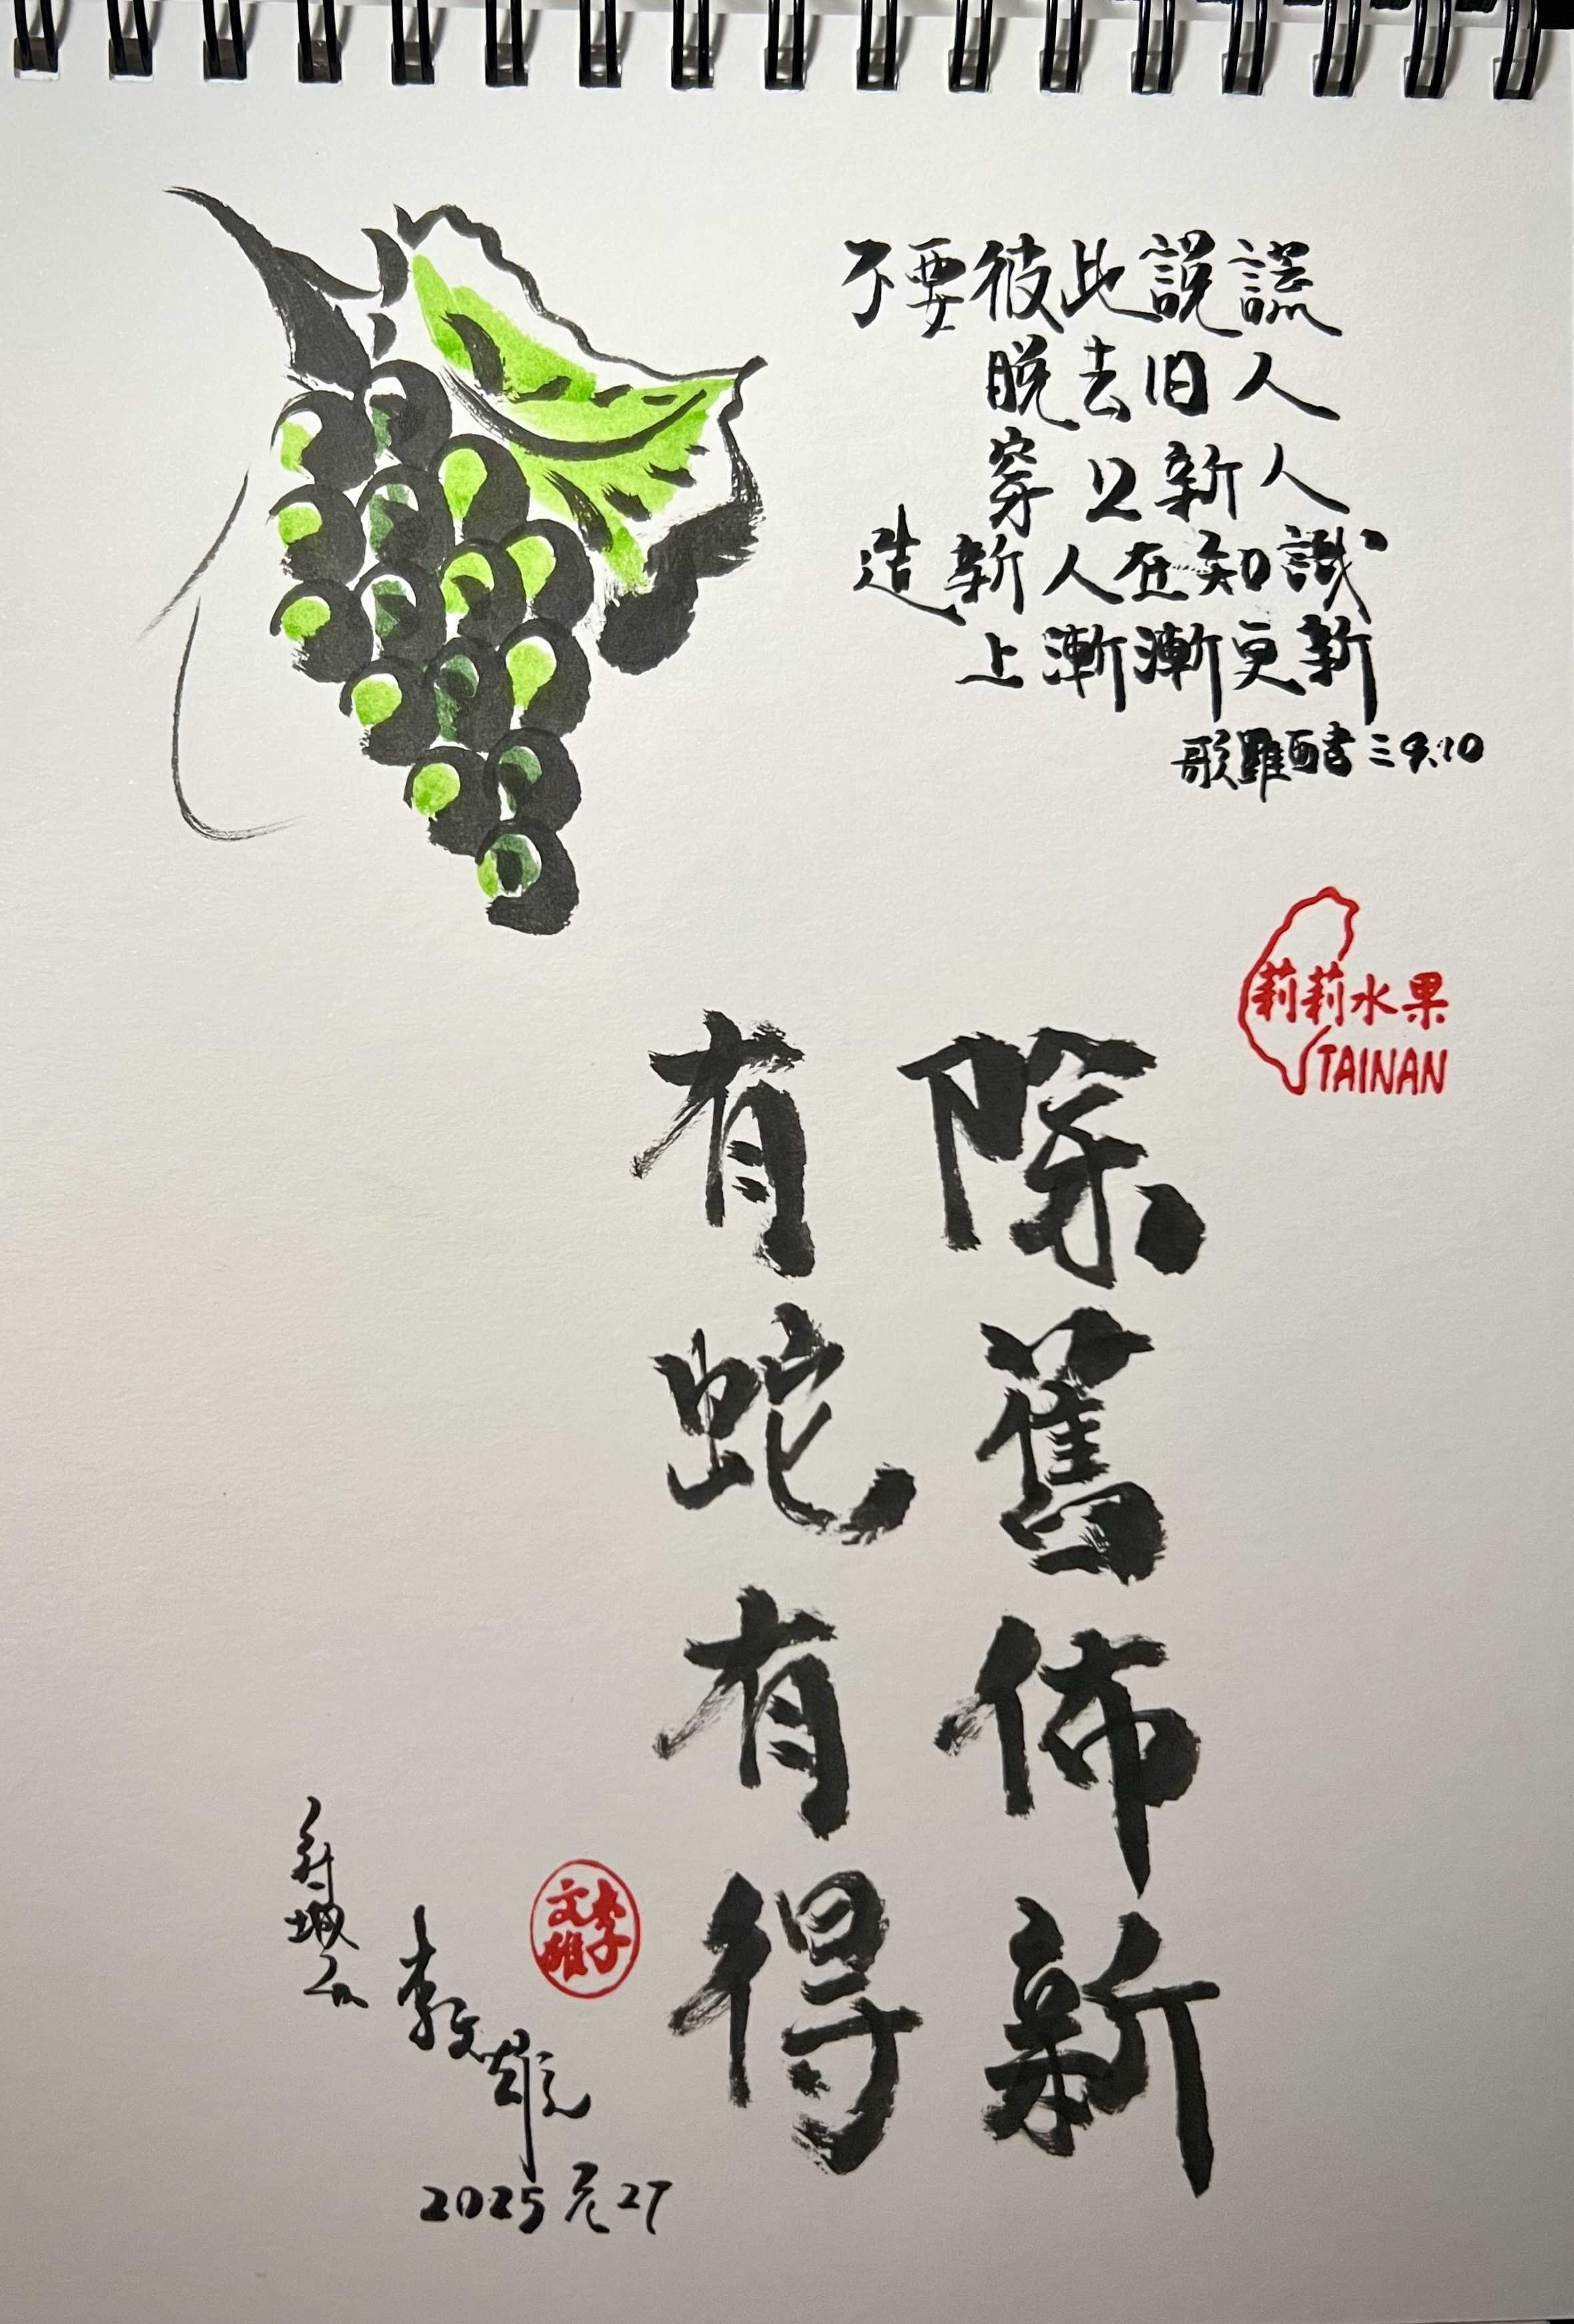 不要彼此說謊
脫去旧人
穿上新人
造新人在知識
上漸漸更新
歌羅西書三9.10
莉莉水果
TAINAN
除舊佈新
有蛇有得
李文雄
府城
李文雄
2025元27